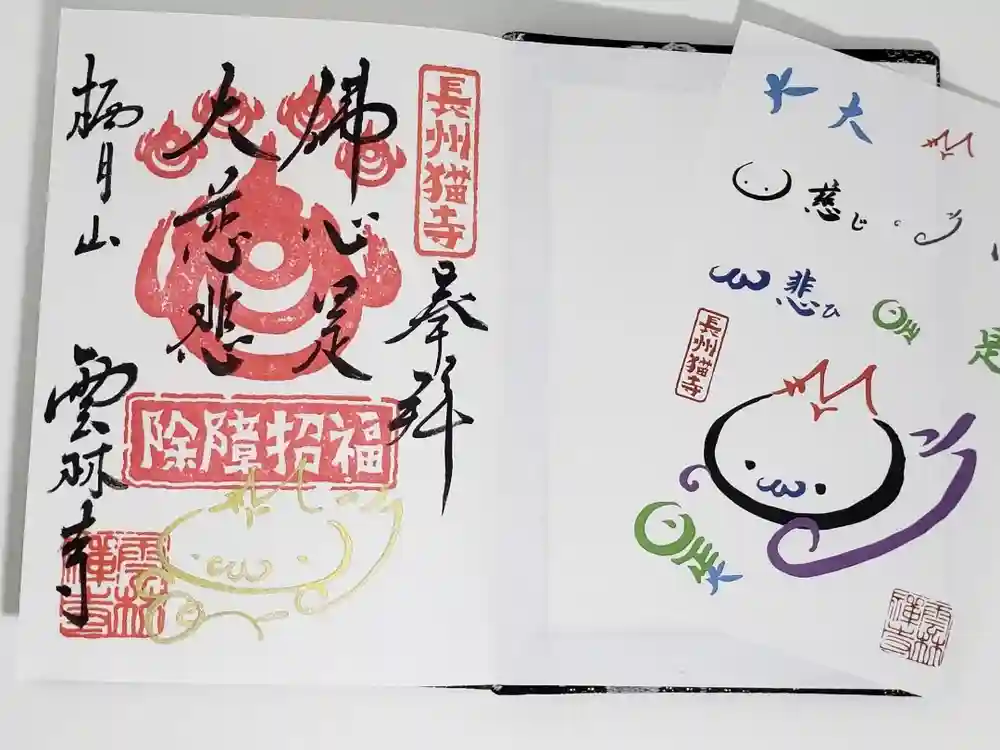 長州猫寺
奉拝
佛心是
大慈悲
福招障除
栖月山
雲林寺
雲林
禅寺
大
慈じ
悲ひ
是
長州猫寺
雲林
禅寺